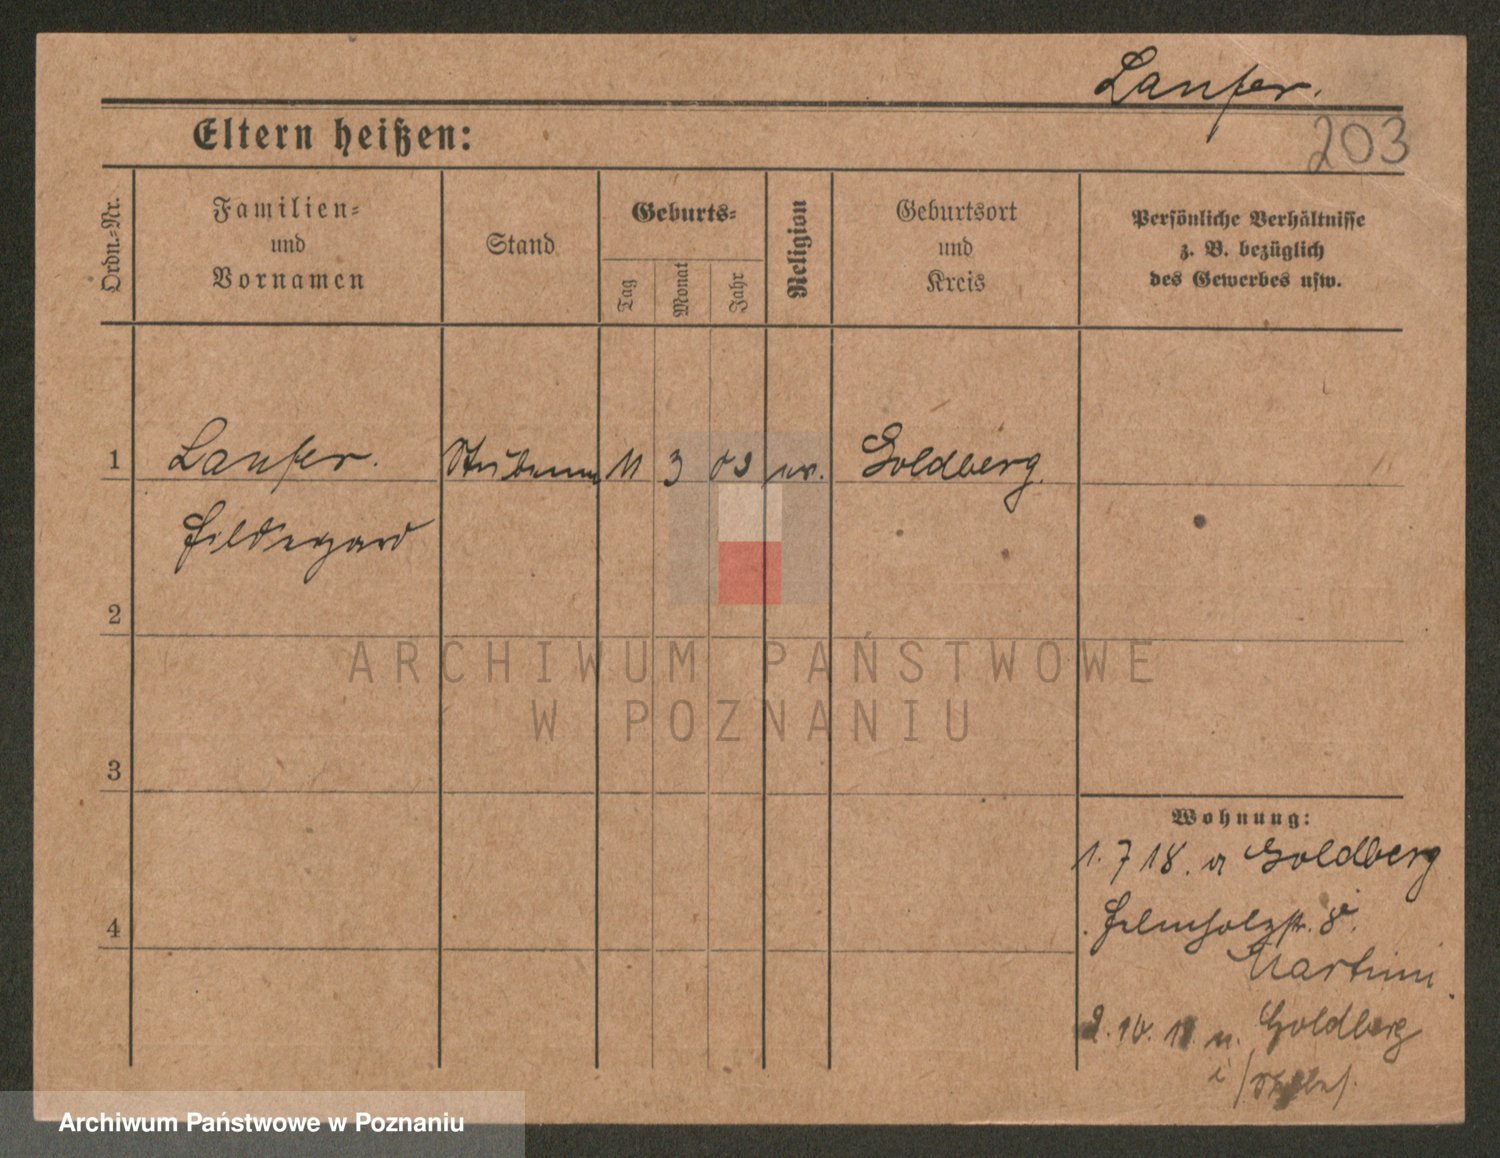 Laufer.
203
Eltern heißen:
Ordn.-Nr.
Familien-
und
Vornamen
Stand
Geburts-
Tag
Monat
Jahr
Religion
Geburtsort
und
Kreis
Persönliche Verhältnisse
z. B. bezüglich
des Gewerbes usw.
1
Laufer.
11
3
02
ev.
Goldberg.
Hildegard
2
ARCHIWUM PAŃSTWOWE
W POZNANIU
3
Wohnung:
1. 7 18. v Goldberg
Helmholzstr. 8
Martini.
4
2. 10. 18 n. Goldberg
i/Schles.
Archiwum Państwowe w Poznaniu